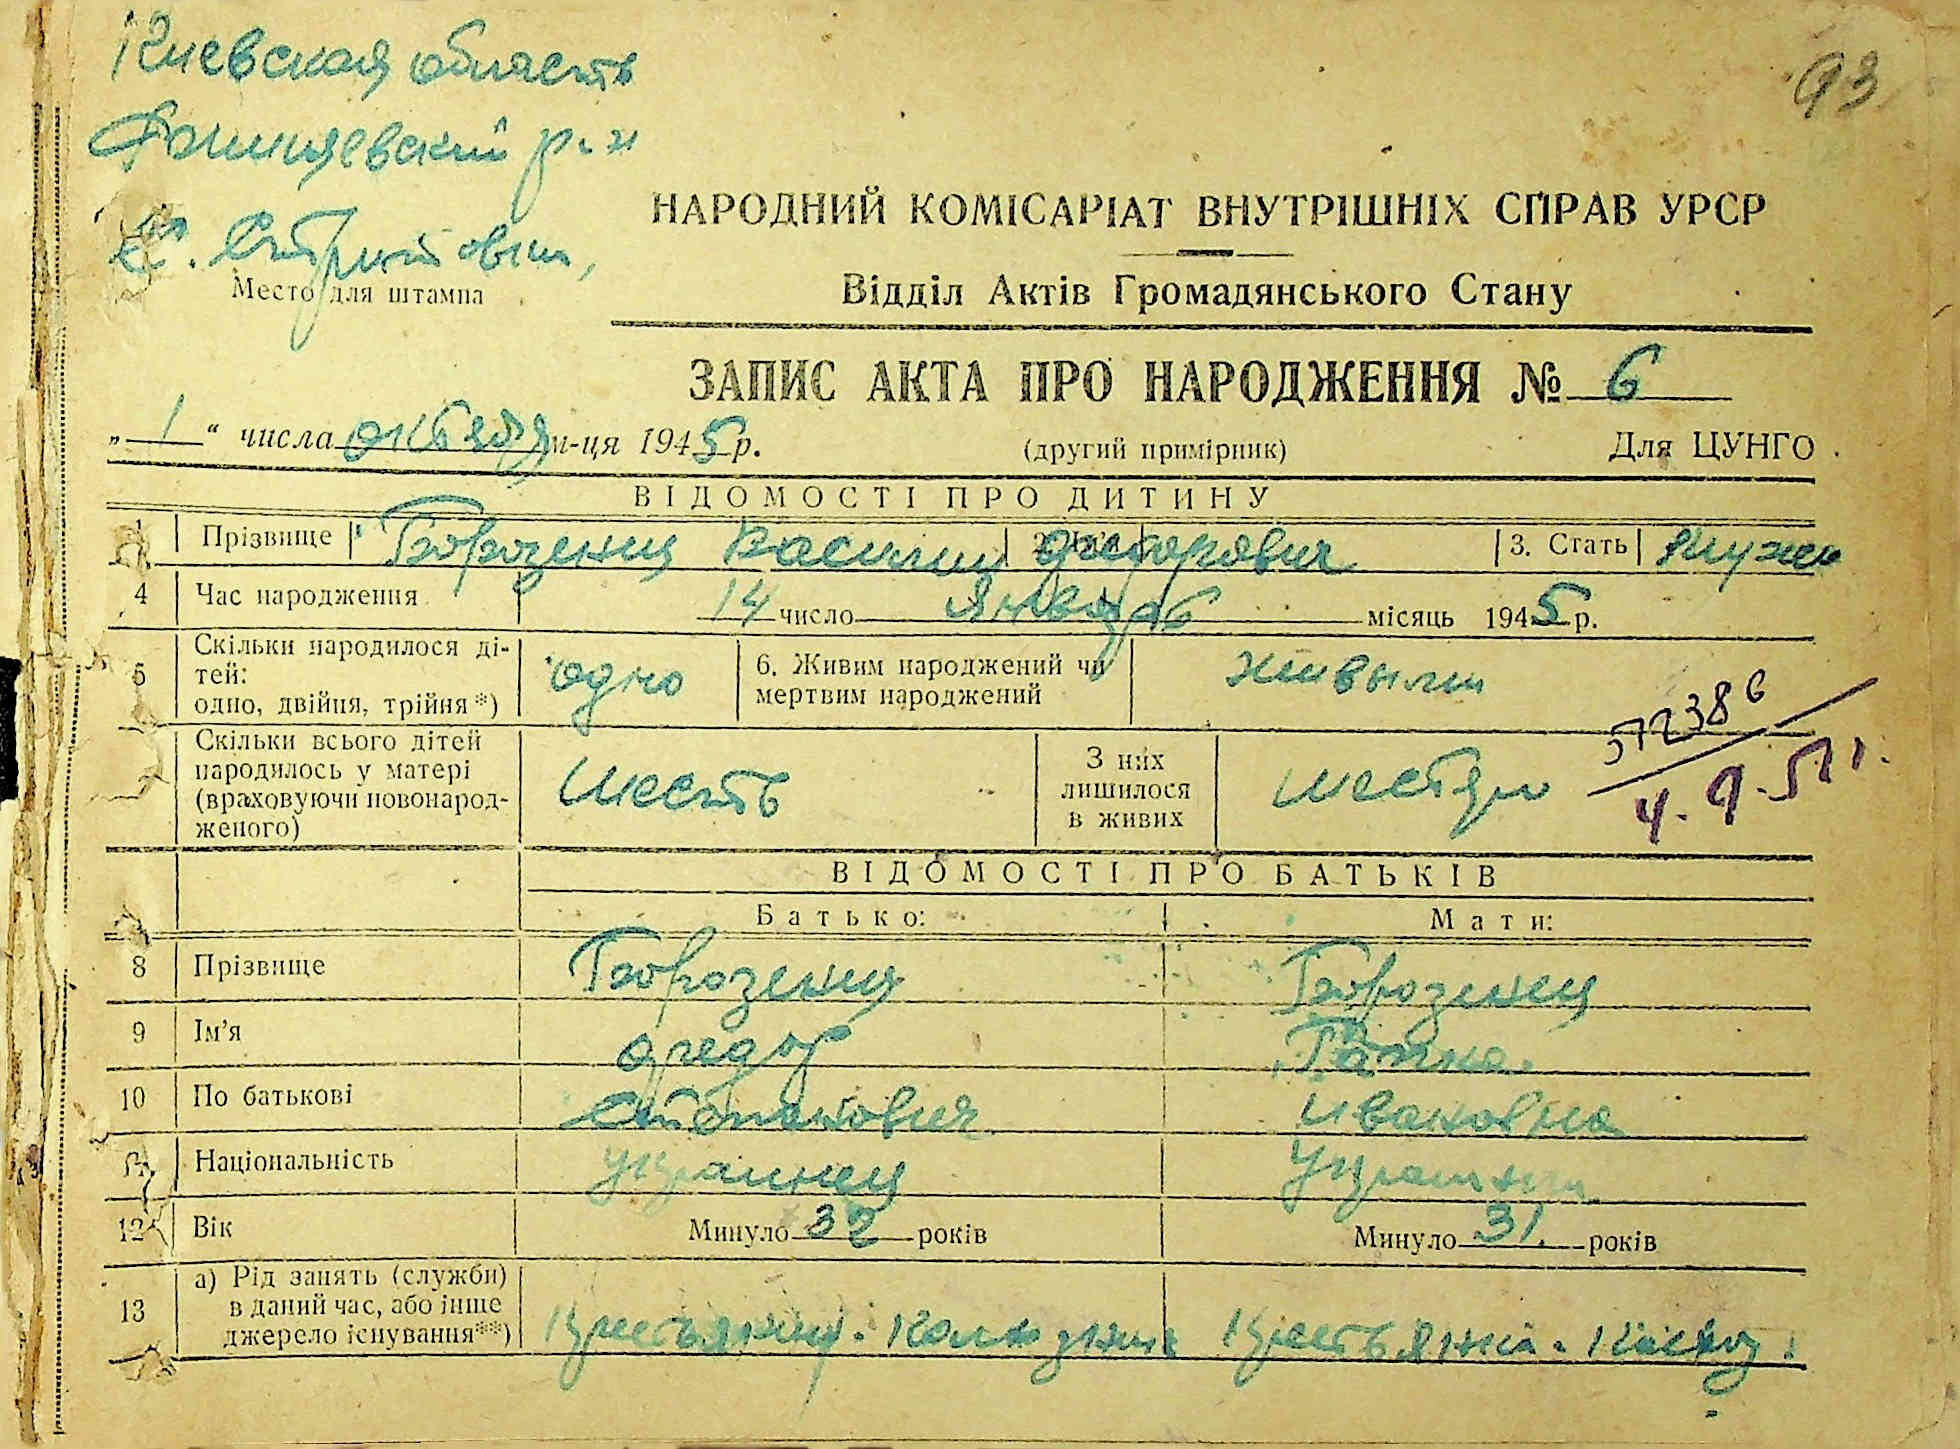 Киевская область
93
р-н
с.
Место для штампа
НАРОДНИЙ КОМІСАРІАТ ВНУТРІШНІХ СПРАВ УРСР
Відділ Актів Громадянського Стану
ЗАПИС АКТА ПРО НАРОДЖЕННЯ № 6
„ 1 “ числа октября м-ця 1945 р.
(другий примірник)
Для ЦУНГО
ВІДОМОСТІ ПРО ДИТИНУ
1 Прізвище Борозенец Василий 2. Ім'я Федорович 3. Стать мужск
4 Час народження 14 число января місяць 1945 р.
5 Скільки народилося ді-
тей:
одно, двійня, трійня*) одно 6. Живим народжений чи
мертвим народжений живым
572386
4.9.51 г.
7 Скільки всього дітей
народилось у матері
(враховуючи новонарод-
женого) шесть З них
лишилося
в живих шестеро
ВІДОМОСТІ ПРО БАТЬКІВ
Батько: Мати:
8 Прізвище Борозенец Борозенец
9 Ім'я Федор Гапка
10 По батькові Степанович Ивановна
11 Національність украинец Украинка
12 Вік Минуло 32 років Минуло 31 років
13 а) Рід занять (служби)
в даний час, або інше
джерело існування**) Крестьянин. Колхозник Крестьянка.